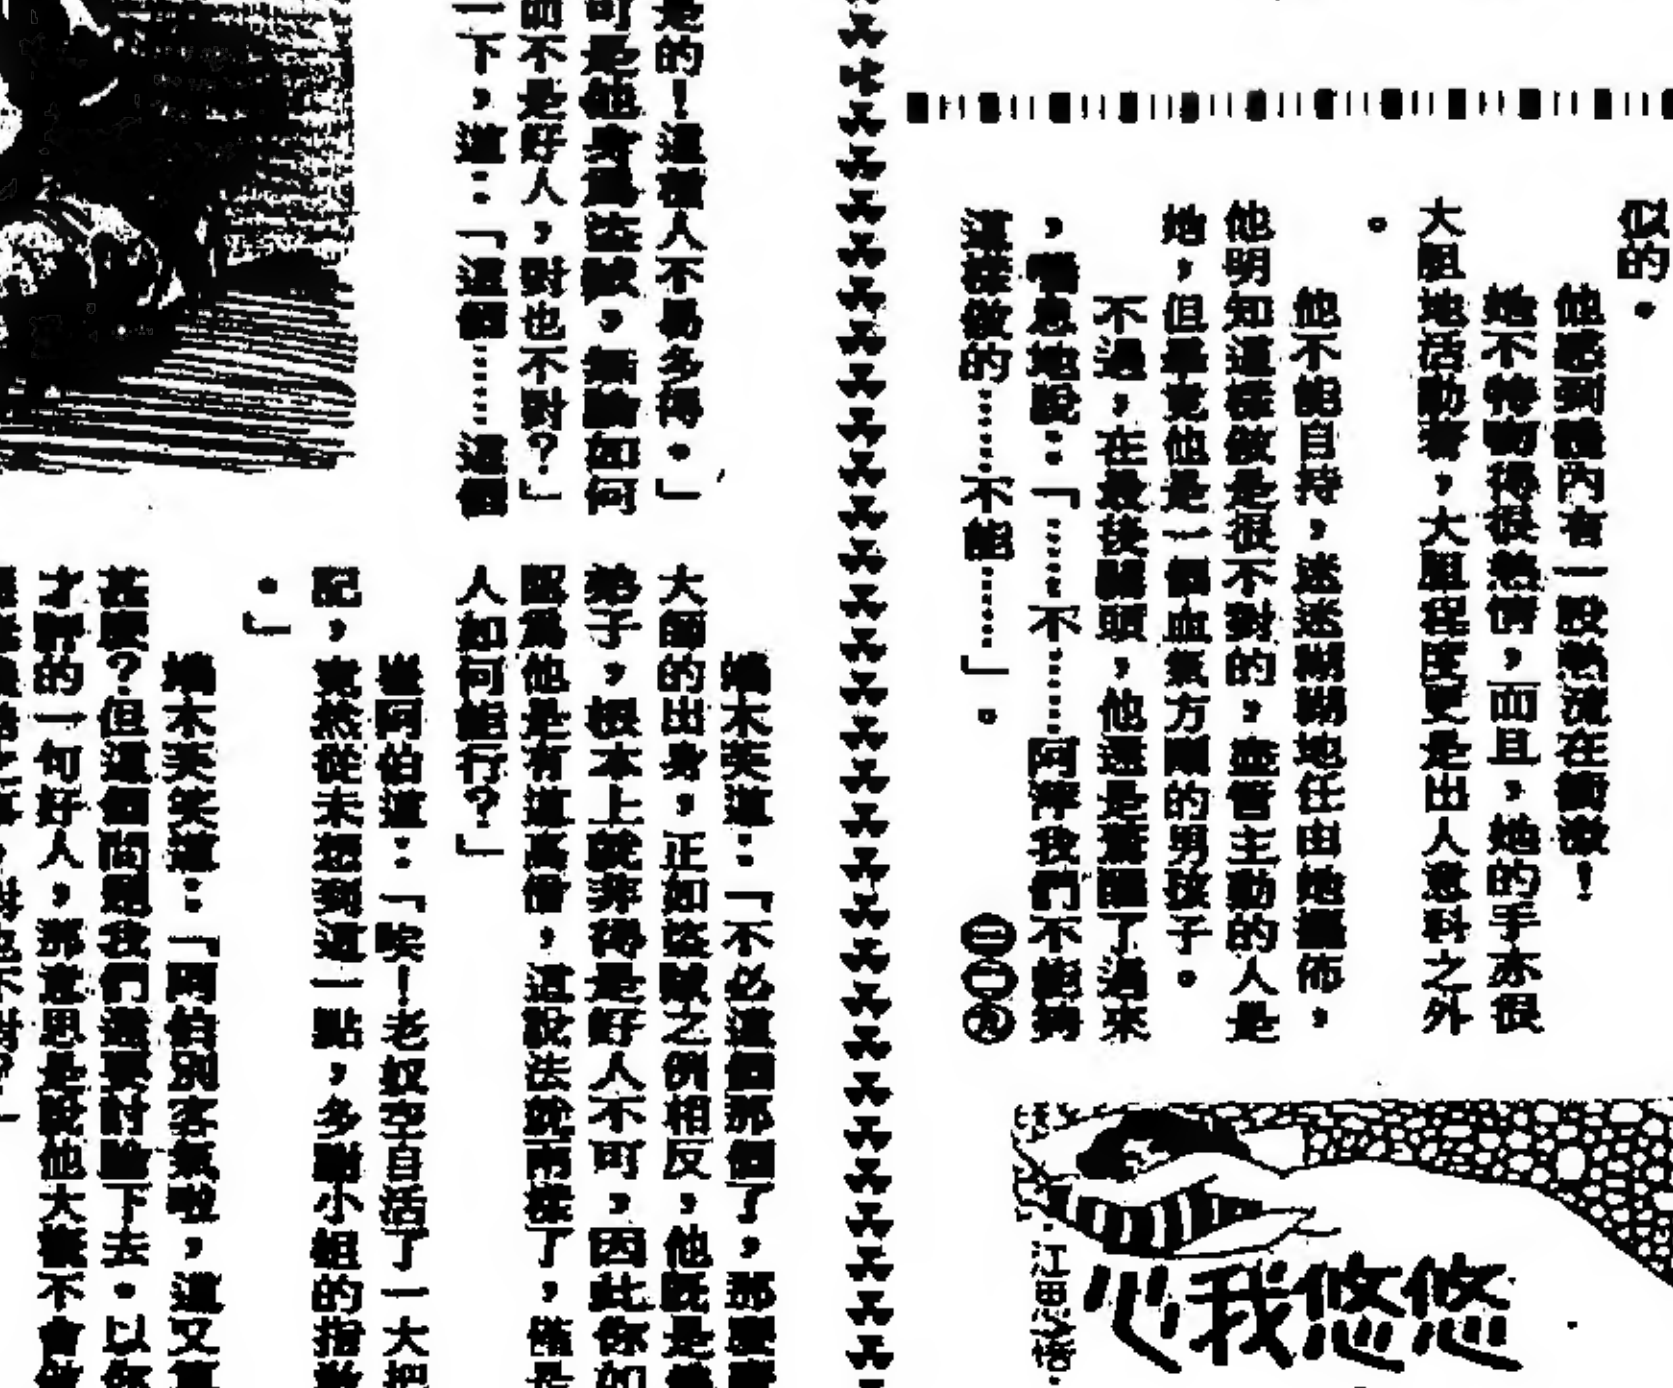 似的。
他感到體內有一股熱流在衝激！
她不特吻得很熱情，而且，她的手亦很
大胆地活動着，大胆程度更是出人意料之外
。
他不能自持，迷迷糊糊地任由她擺佈，
他明知這樣做是很不對的，儘管主動的人是
她，但畢竟他是一個血氣方剛的男孩子。
不過，在最後關頭，他還是驚醒了過來
，喘息地說：「……不……阿萍我們不能夠
這樣做的……不能……」。
㊁㊀㊈
悠悠我心
江思
是的！這種人不易多得。」
可是他身為盜賊，無論如何
不是好人，對也不對？」
一下，道：「這個……這個
木英道：「不必這個那個了，那麼
大師的出身，正如盜賊之例相反，他既是
弟子，根本上就非得是好人不可，因此你如
認為他是有道高僧，這說法就兩樣了，
人如何能行？」
崔阿伯道：「唉！老奴空自活了一大把
記，竟然從未想到這一點，多謝小姐的指
。」
木英笑道：「阿伯別客氣啦，這又算
甚麼？但這個問題我們還要討論下去。以你
才講的一句好人，那意思是說他大概不會做